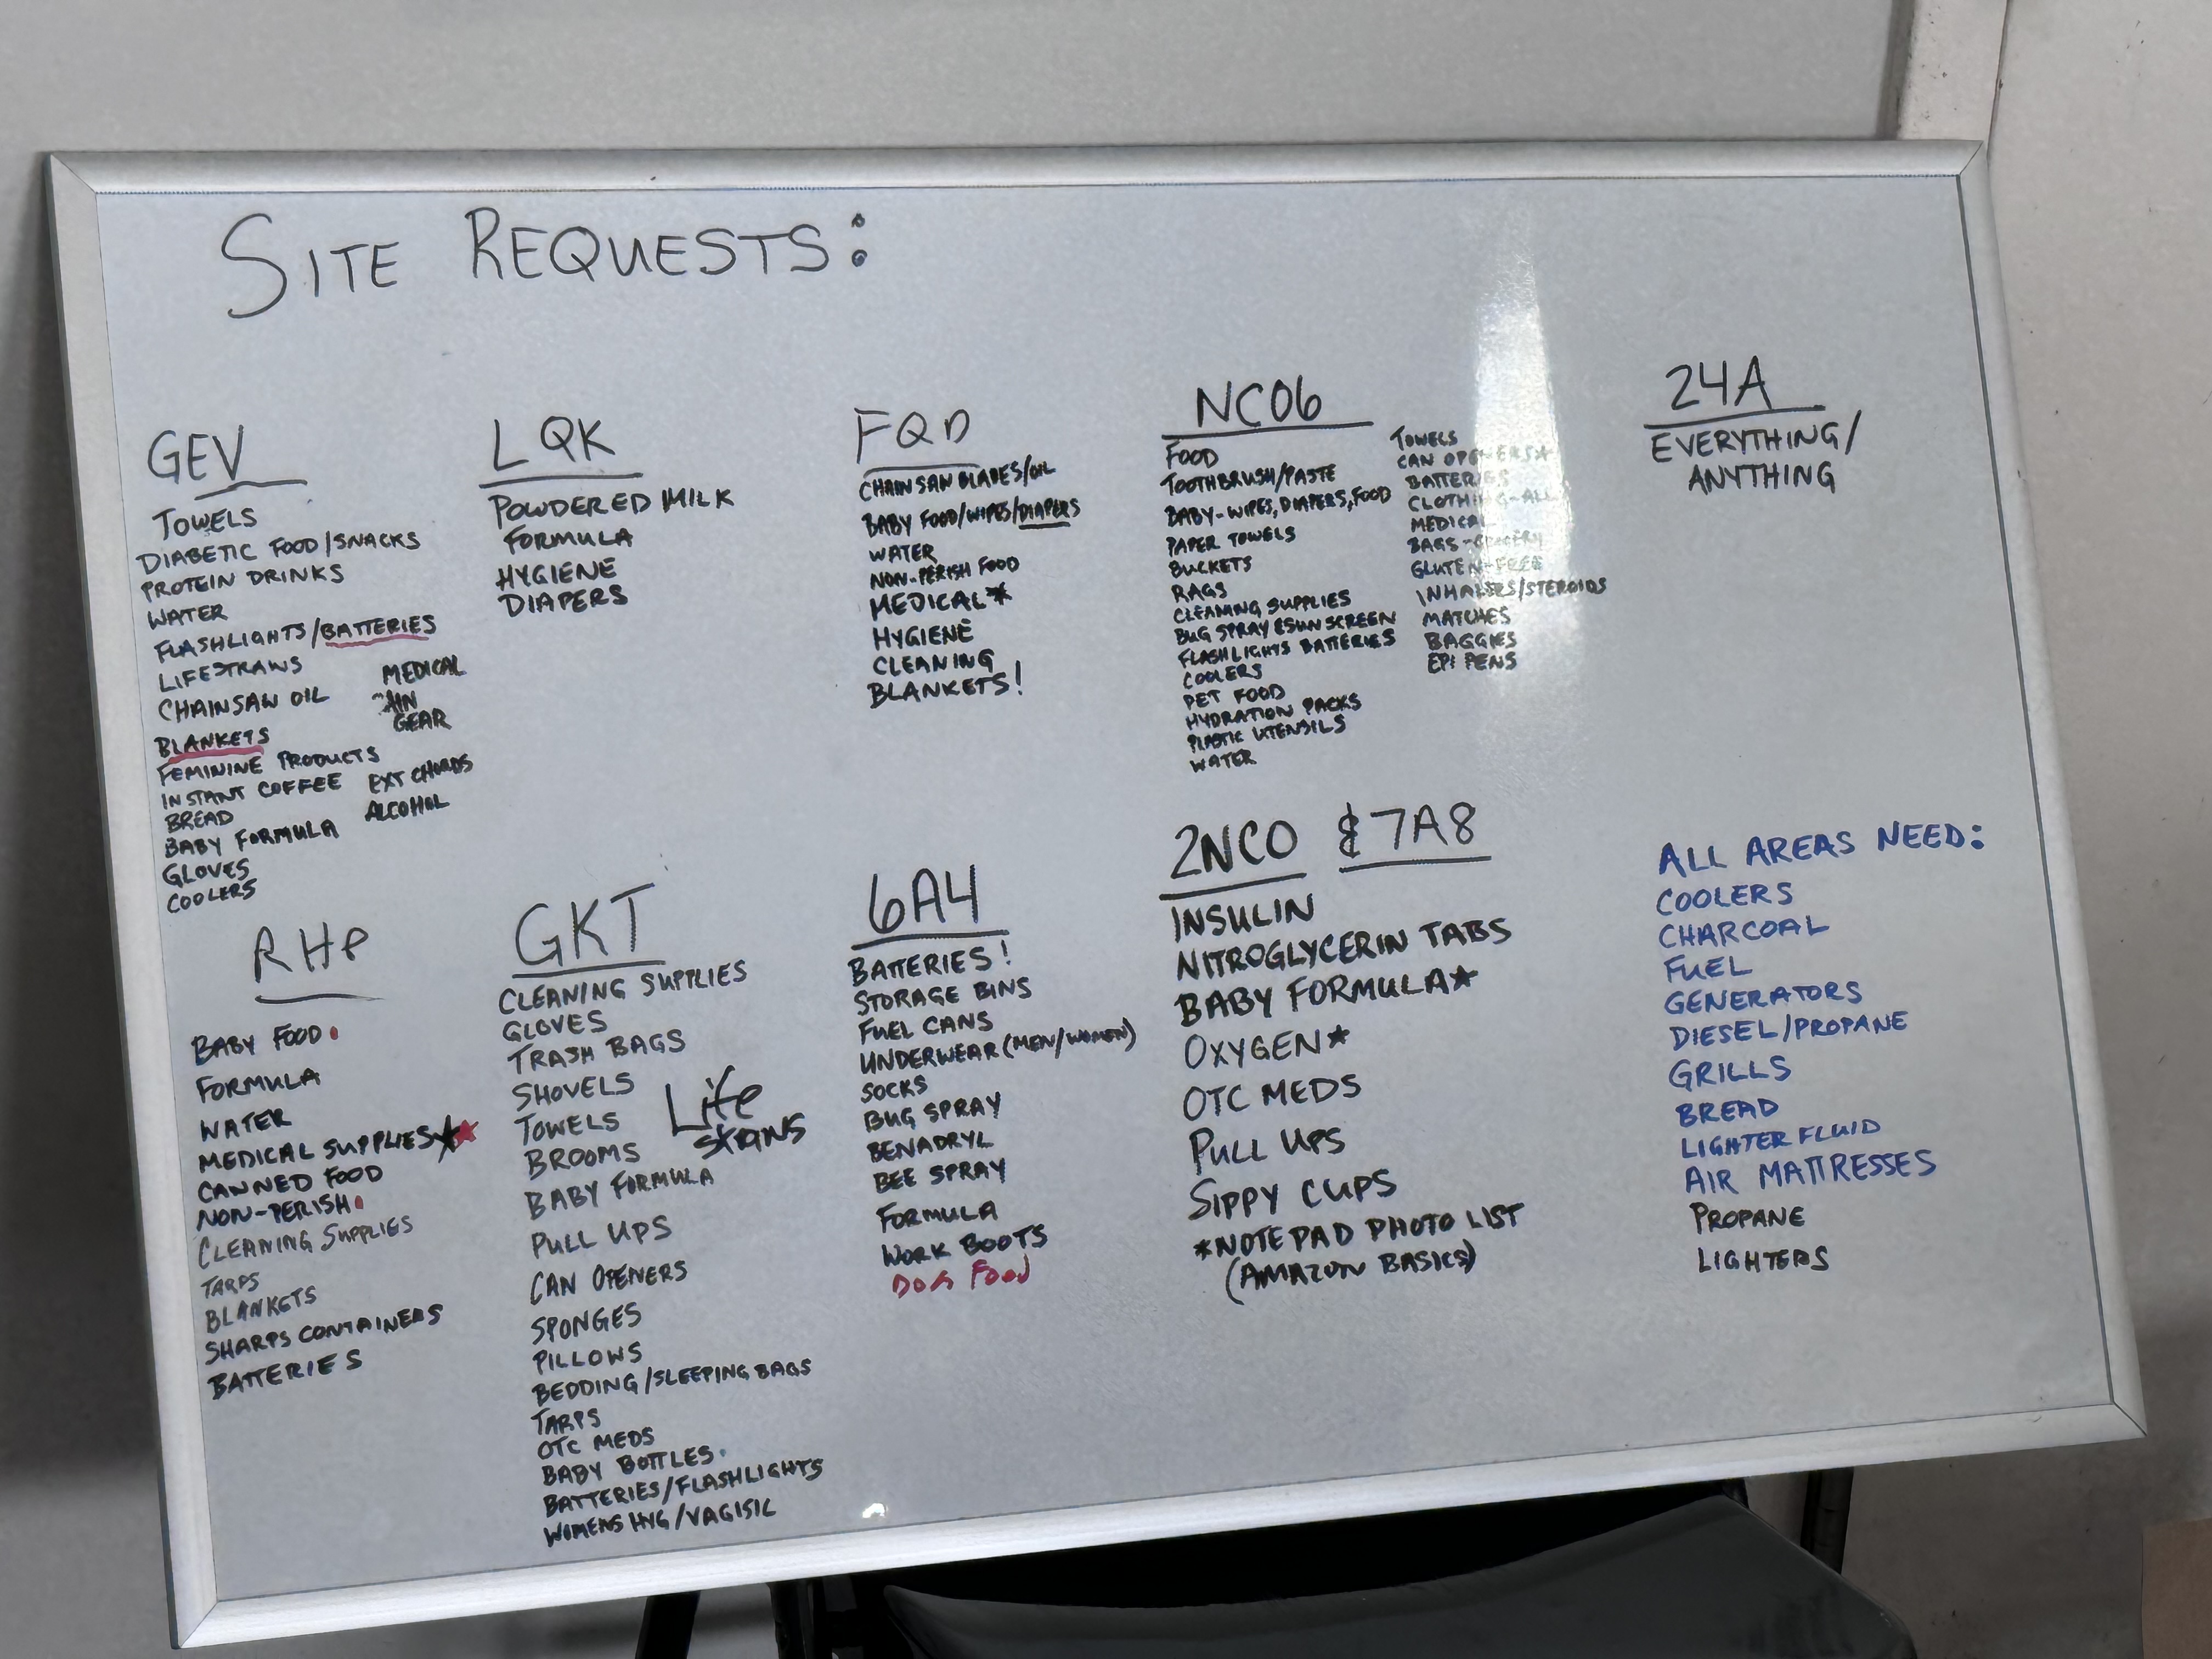 SITE REQUESTS:
GEV
TOWELS
DIABETIC FOOD/SNACKS
PROTEIN DRINKS
WATER
FLASHLIGHTS/BATTERIES
LIFESTRAWS
CHAINSAW OIL
BLANKETS
FEMININE PRODUCTS
INSTANT COFFEE
BREAD
BABY FORMULA
GLOVES
COOLERS
MEDICAL
GEAR
EXT CHORDS
ALCOHOL
LQK
POWDERED MILK
FORMULA
HYGIENE
DIAPERS
FQD
CHAINSAW BLADES/OIL
BABY FOOD/WIPES/DIAPERS
WATER
NON-PERISH FOOD
MEDICAL*
HYGIENE
CLEANING
BLANKETS!
NC06
FOOD
TOOTHBRUSH/PASTE
BABY-WIPES, DIAPERS, FOOD
PAPER TOWELS
BUCKETS
RAGS
CLEANING SUPPLIES
BUG SPRAY & SUN SCREEN
FLASHLIGHTS BATTERIES
COOLERS
PET FOOD
HYDRATION PACKS
PLASTIC UTENSILS
WATER
TOWELS
CAN OPENERS*
BATTERIES
CLOTHING-ALL
MEDICAL
BAGS-GROCERY
GLUTEN-FREE
INHALERS/STEROIDS
MATCHES
BAGGIES
EPI PENS
24A
EVERYTHING/
ANYTHING
RH8
BABY FOOD
FORMULA
WATER
MEDICAL SUPPLIES★★
CANNED FOOD
NON-PERISH
CLEANING SUPPLIES
TARPS
BLANKETS
SHARPS CONTAINERS
BATTERIES
GKT
CLEANING SUPPLIES
GLOVES
TRASH BAGS
SHOVELS
TOWELS
BROOMS
BABY FORMULA
PULL UPS
CAN OPENERS
SPONGES
PILLOWS
BEDDING/SLEEPING BAGS
TARPS
OTC MEDS
BABY BOTTLES
BATTERIES/FLASHLIGHTS
WOMENS HYG/VAGISIL
Life
6A4
BATTERIES!
STORAGE BINS
FUEL CANS
UNDERWEAR (MEN/WOMEN)
SOCKS
BUG SPRAY
BENADRYL
BEE SPRAY
FORMULA
WORK BOOTS
DOG FOOD
2NCO & 7A8
INSULIN
NITROGLYCERIN TABS
BABY FORMULA★
OXYGEN★
OTC MEDS
PULL UPS
SIPPY CUPS
*NOTEPAD PHOTO LIST
(AMAZON BASICS)
ALL AREAS NEED:
COOLERS
CHARCOAL
FUEL
GENERATORS
DIESEL/PROPANE
GRILLS
BREAD
LIGHTER FLUID
AIR MATTRESSES
PROPANE
LIGHTERS